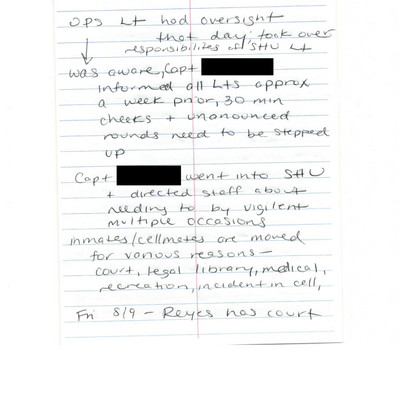 OPS Lt had oversight
that day; took over
responsibilites of SHU Lt
was aware, Capt
informed all Lts approx
a week prior, 30 min
checks + unanounced
rounds need to be stepped
up
Capt went into SHU
+ directed staff about
needing to by vigilent
multiple occasions
inmates/cellmates are moved
for various reasons -
court, legal library, medical,
recreation, incident in cell,
Fri 8/9 - Reyes has court